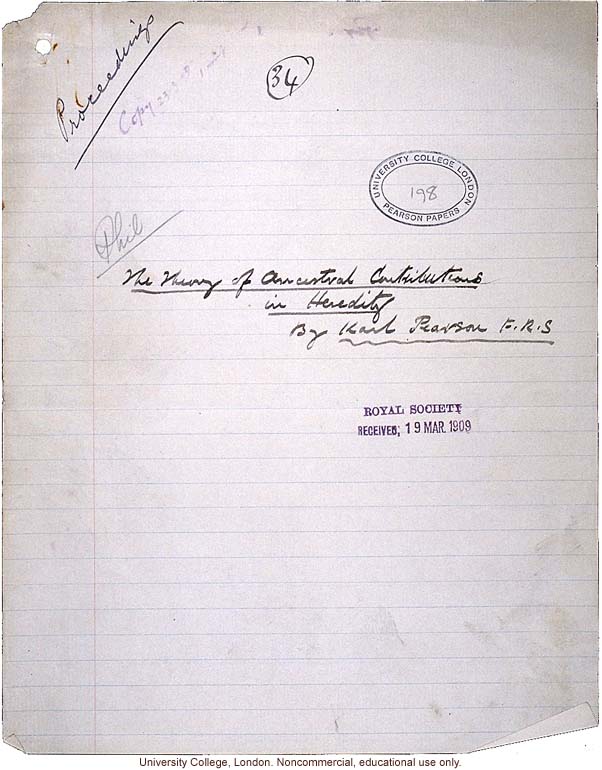 Proceedings
Copy
34
UNIVERSITY COLLEGE LONDON
198
PEARSON PAPERS
Phil
The Theory of Ancestral Contributions
in Heredity
By Karl Pearson F.R.S
ROYAL SOCIETY
RECEIVED; 19 MAR. 1909
University College, London. Noncommercial, educational use only.